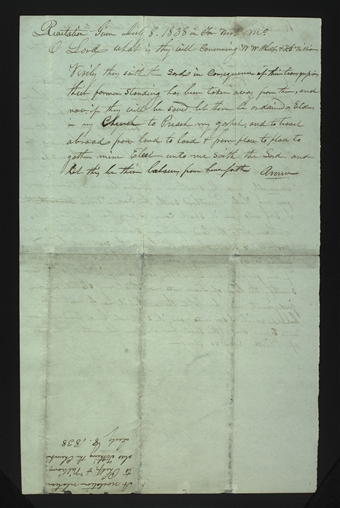 Revelation Given July 8, 1838 in Far West Mo
O Lord what is thy will concerning W W Phelps & F G Williams
Verily thus saith the Lord in Consequence of their transgressions
their former Standing has been taken away from them and
now if they will be saved let them be ordained as Elders
in my Church to Preach my gospel and to travel
abroad from land to land & from place to place to
gather mine Elect unto me Saith the Lord and
let this be their labours from hence forth Amen
A revelation relative
to Phelps & Williams
also
July 8, 1838